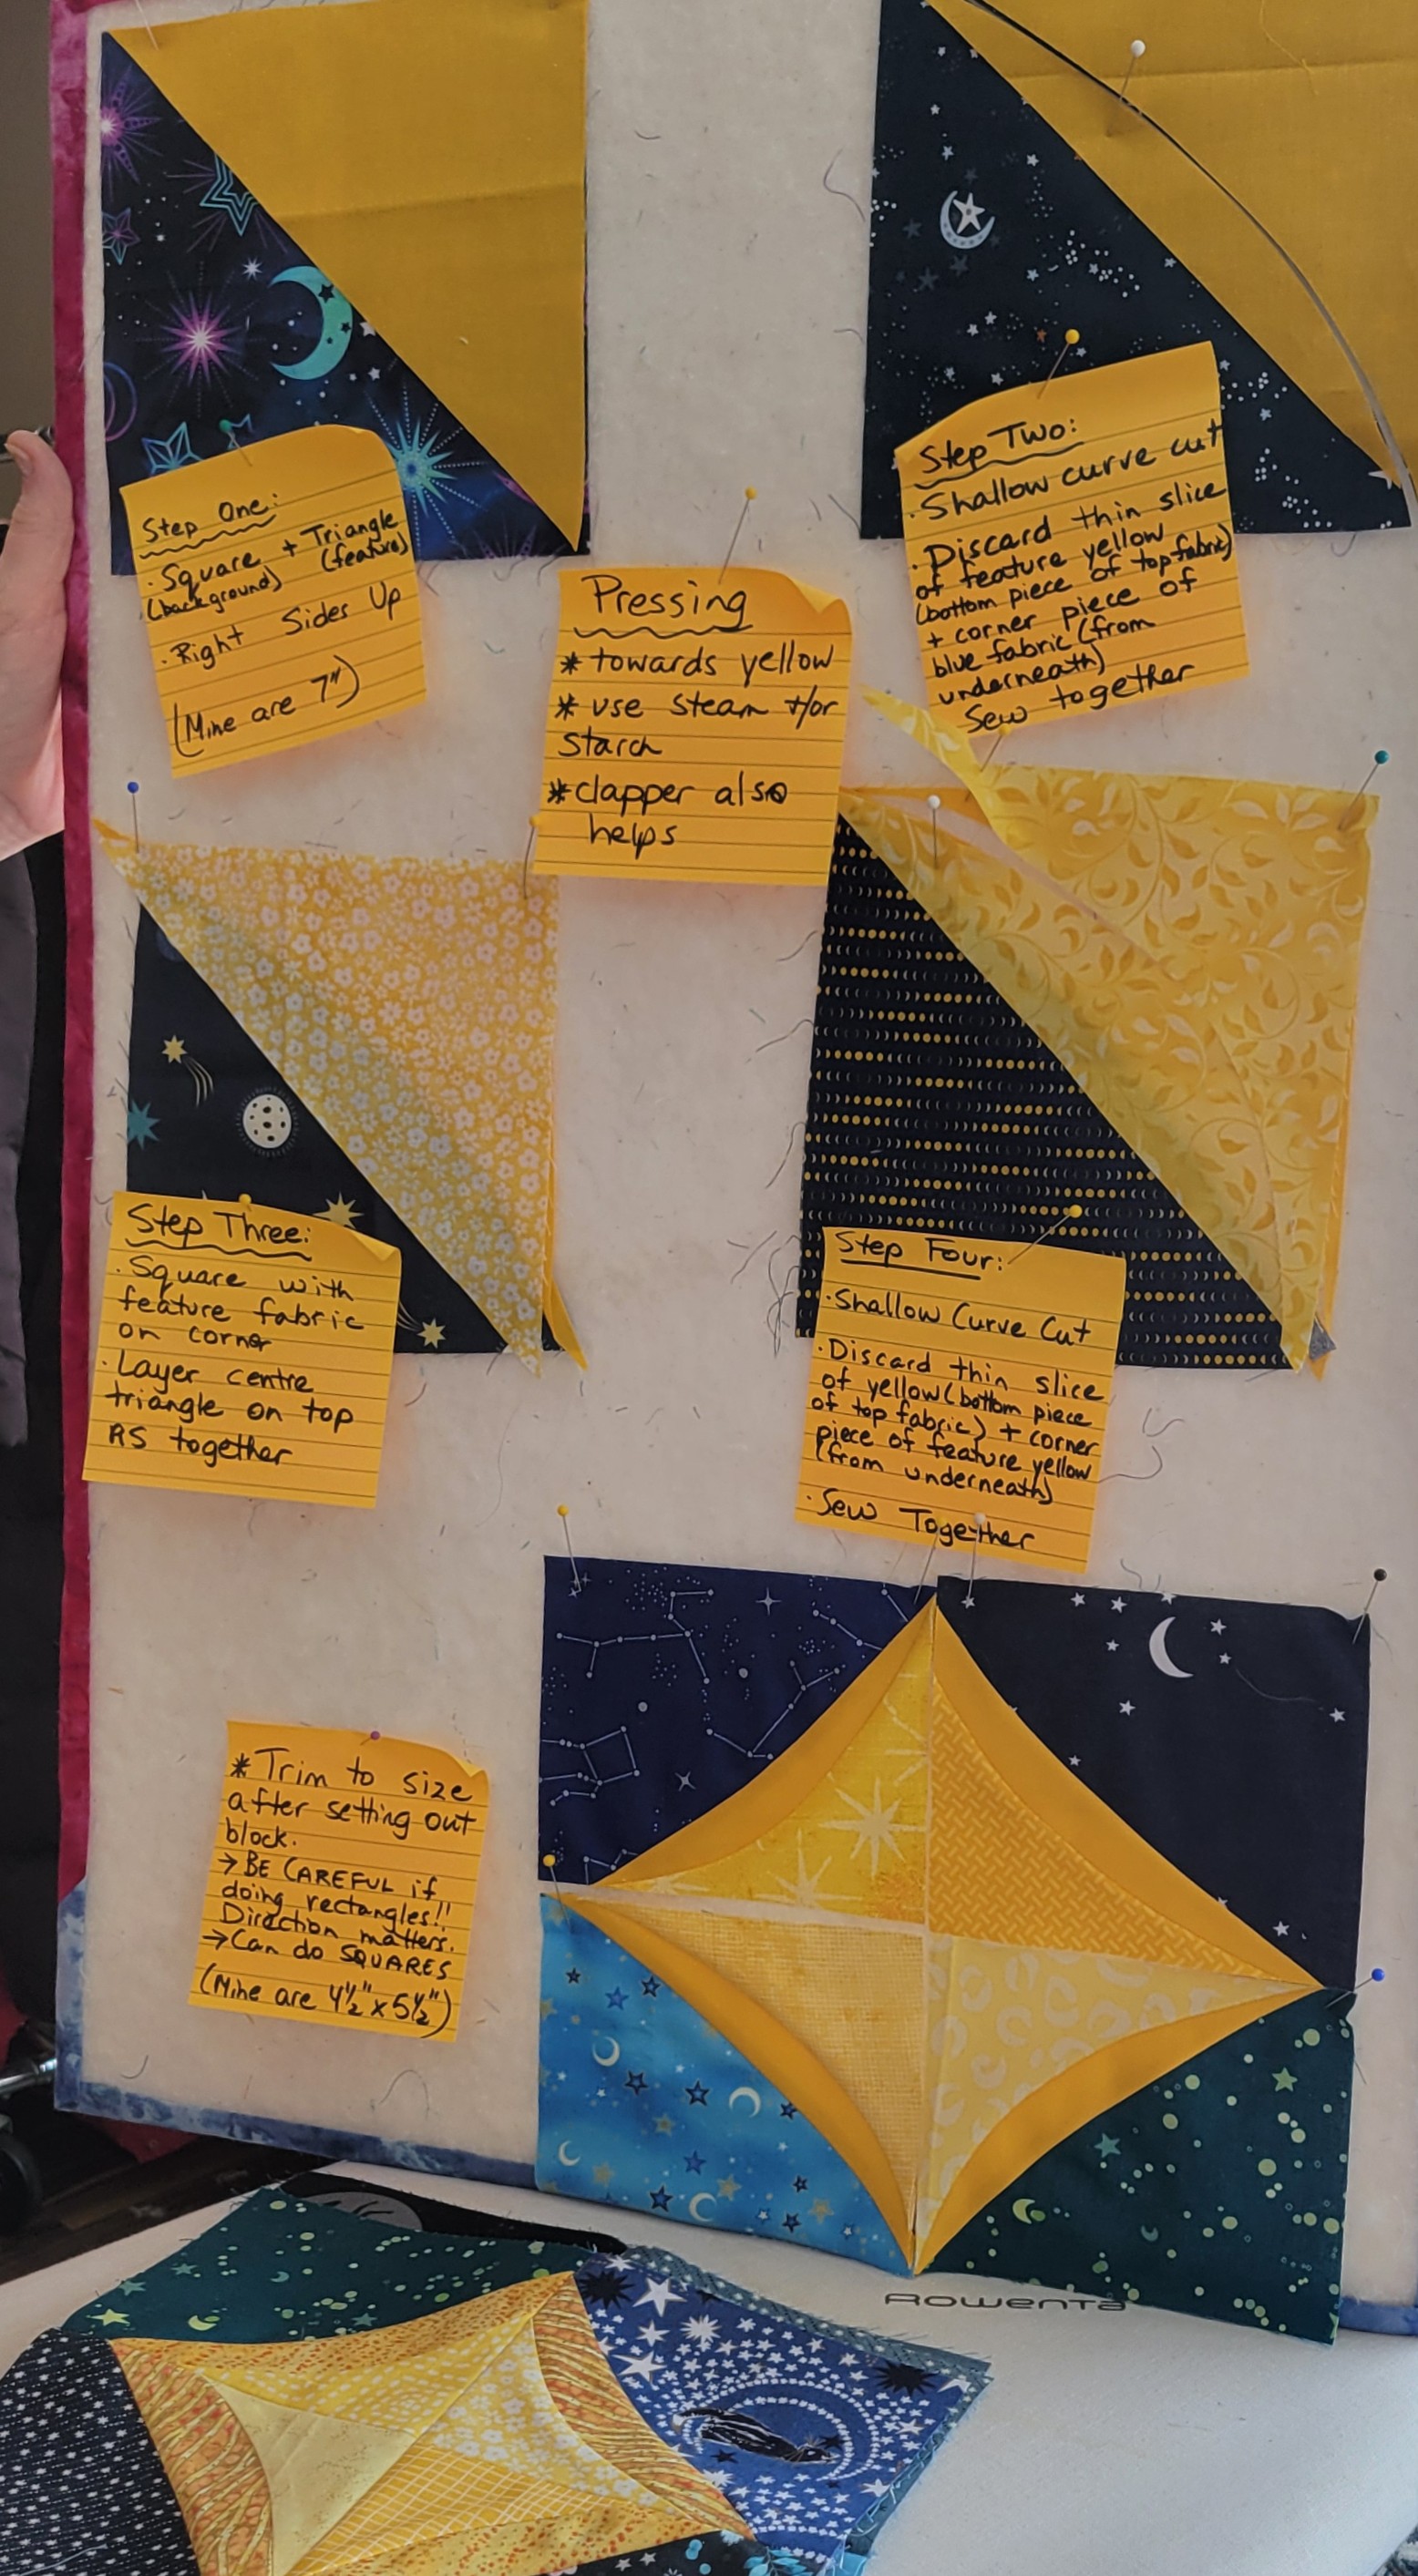 Step One:
· Square + Triangle
(background) (feature)
· Right Sides Up
(Mine are 7")
Step Two:
· Shallow curve cut
· Discard thin slice
of feature yellow
(bottom piece of top fabric)
+ corner piece of
blue fabric (from
underneath)
Sew together
Pressing
* towards yellow
* use steam +/or
starch
* clapper also
helps
Step Three:
· Square with
feature fabric
on corner
· Layer centre
triangle on top
RS together
Step Four:
· Shallow Curve Cut
· Discard thin slice
of yellow (bottom piece
of top fabric) + corner
piece of feature yellow
(from underneath)
· Sew Together
* Trim to size
after setting out
block.
→ BE CAREFUL if
doing rectangles!!
Direction matters.
→ Can do SQUARES
(Mine are 4½" x 5½")
Rowenta